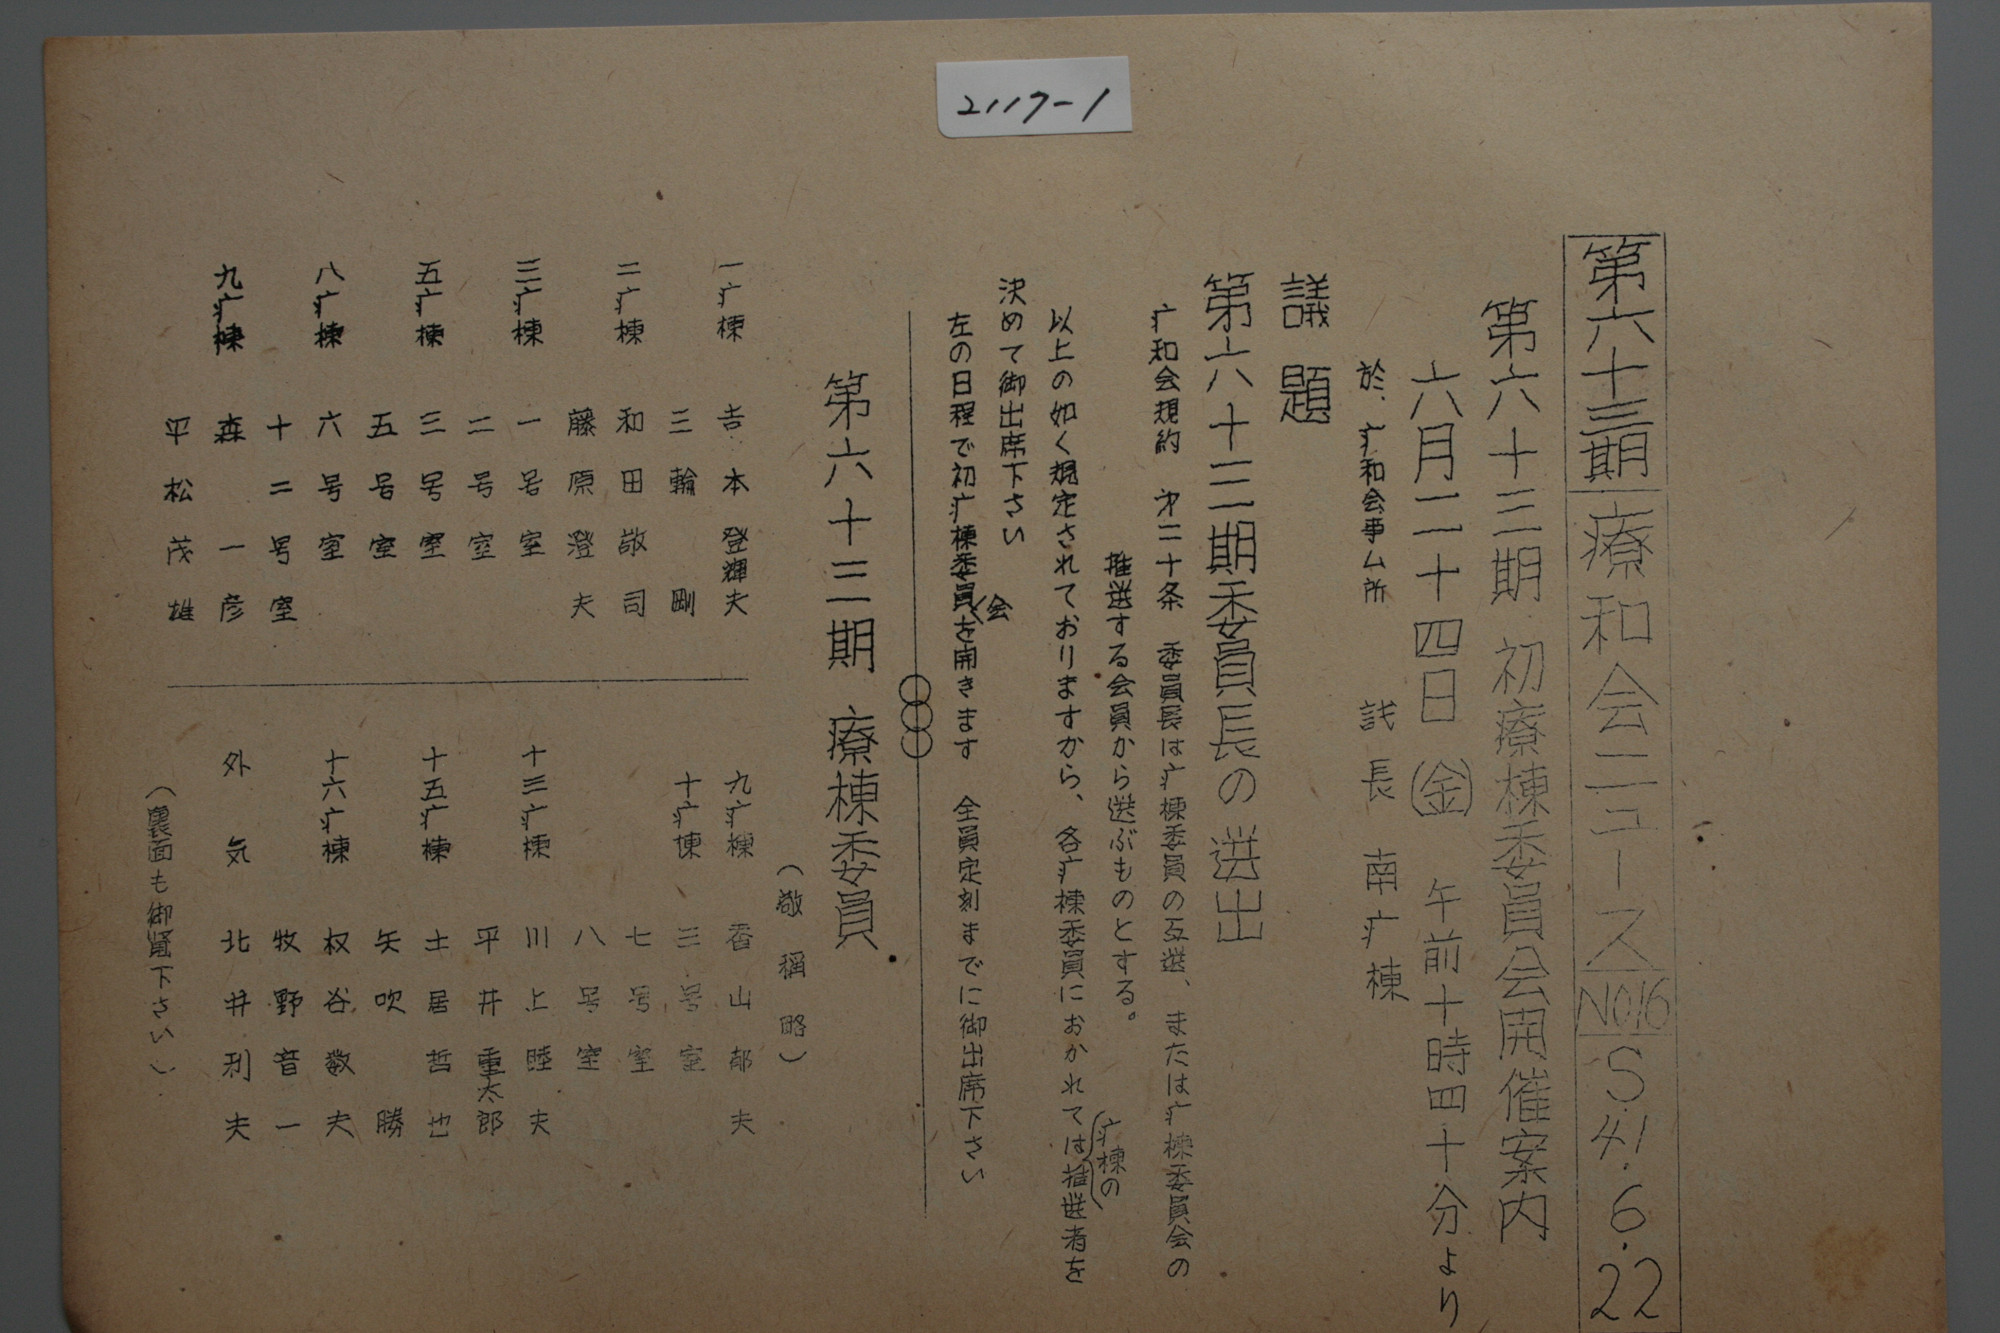 2117-1
第六十三期 療和会ニュース NO.16 S.41.6.22
第六十三期 初療棟委員会開催案内
六月二十四日(金) 午前十時四十分より
於、疒和会事ム所 議長 南疒棟
議題
第六十三期委員長の選出
疒和会規約 㐧二十条 委員長は疒棟委員の互選、または疒棟委員会の
推選する会員から選ぶものとする。
以上の如く規定されておりますから、各疒棟委員におかれては疒棟の推選者を
決めて御出席下さい
左の日程で初疒棟委員会を開きます 全員定刻までに御出席下さい
第六十三期 療棟委員
(敬称略)
一疒棟 吉本登輝夫
三輪剛
二疒棟 和田敬司
藤原澄夫
三疒棟 一号室
二号室
五疒棟 三号室
五号室
八疒棟 六号室
十二号室
九疒棟 森一彦
平松茂雄
九疒棟 香山郁夫
十疒棟 三号室
七号室
八号室
十三疒棟 川上睦夫
平井重太郎
十五疒棟 土居哲也
矢吹勝
十六疒棟 权谷数夫
牧野音一
外気 北井利夫
(裏面も御覧下さい)